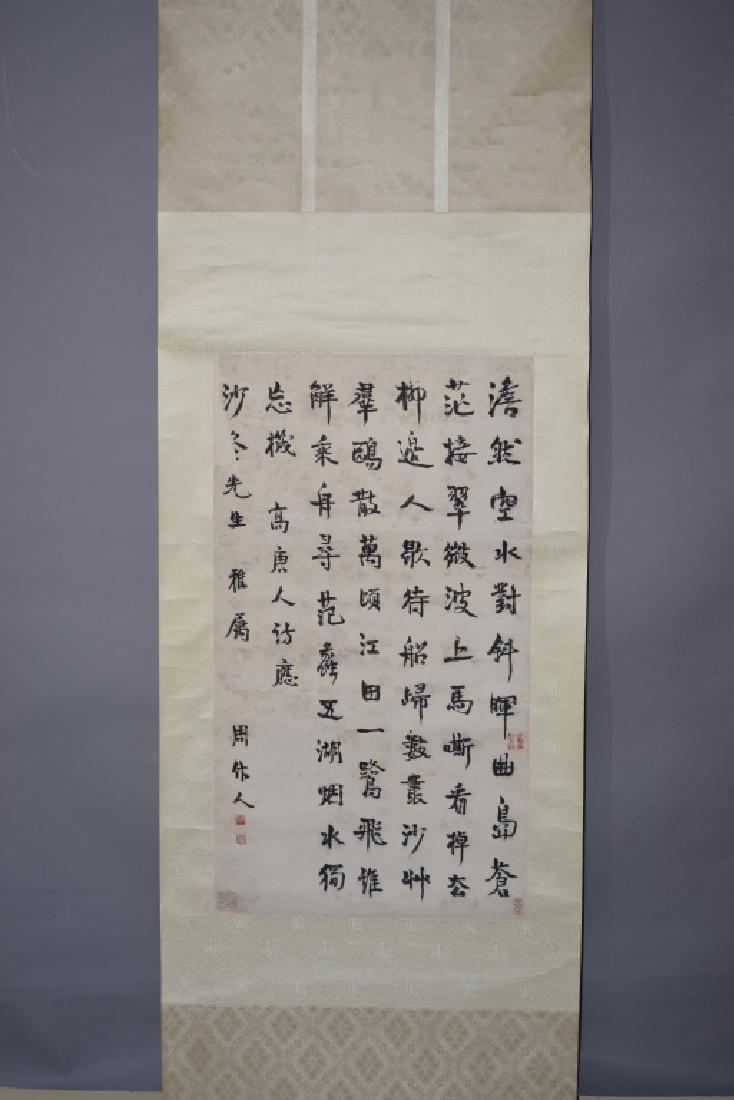 澹然空水對斜暉曲島蒼
茫接翠微波上馬嘶看棹厺
柳邊人歇待船歸數叢沙艸
羣鷗散萬頃江田一鷺飛誰
解乘舟尋范蠡五湖烟水獨
忘機 高唐人
沙冬先生 雅屬
周作人